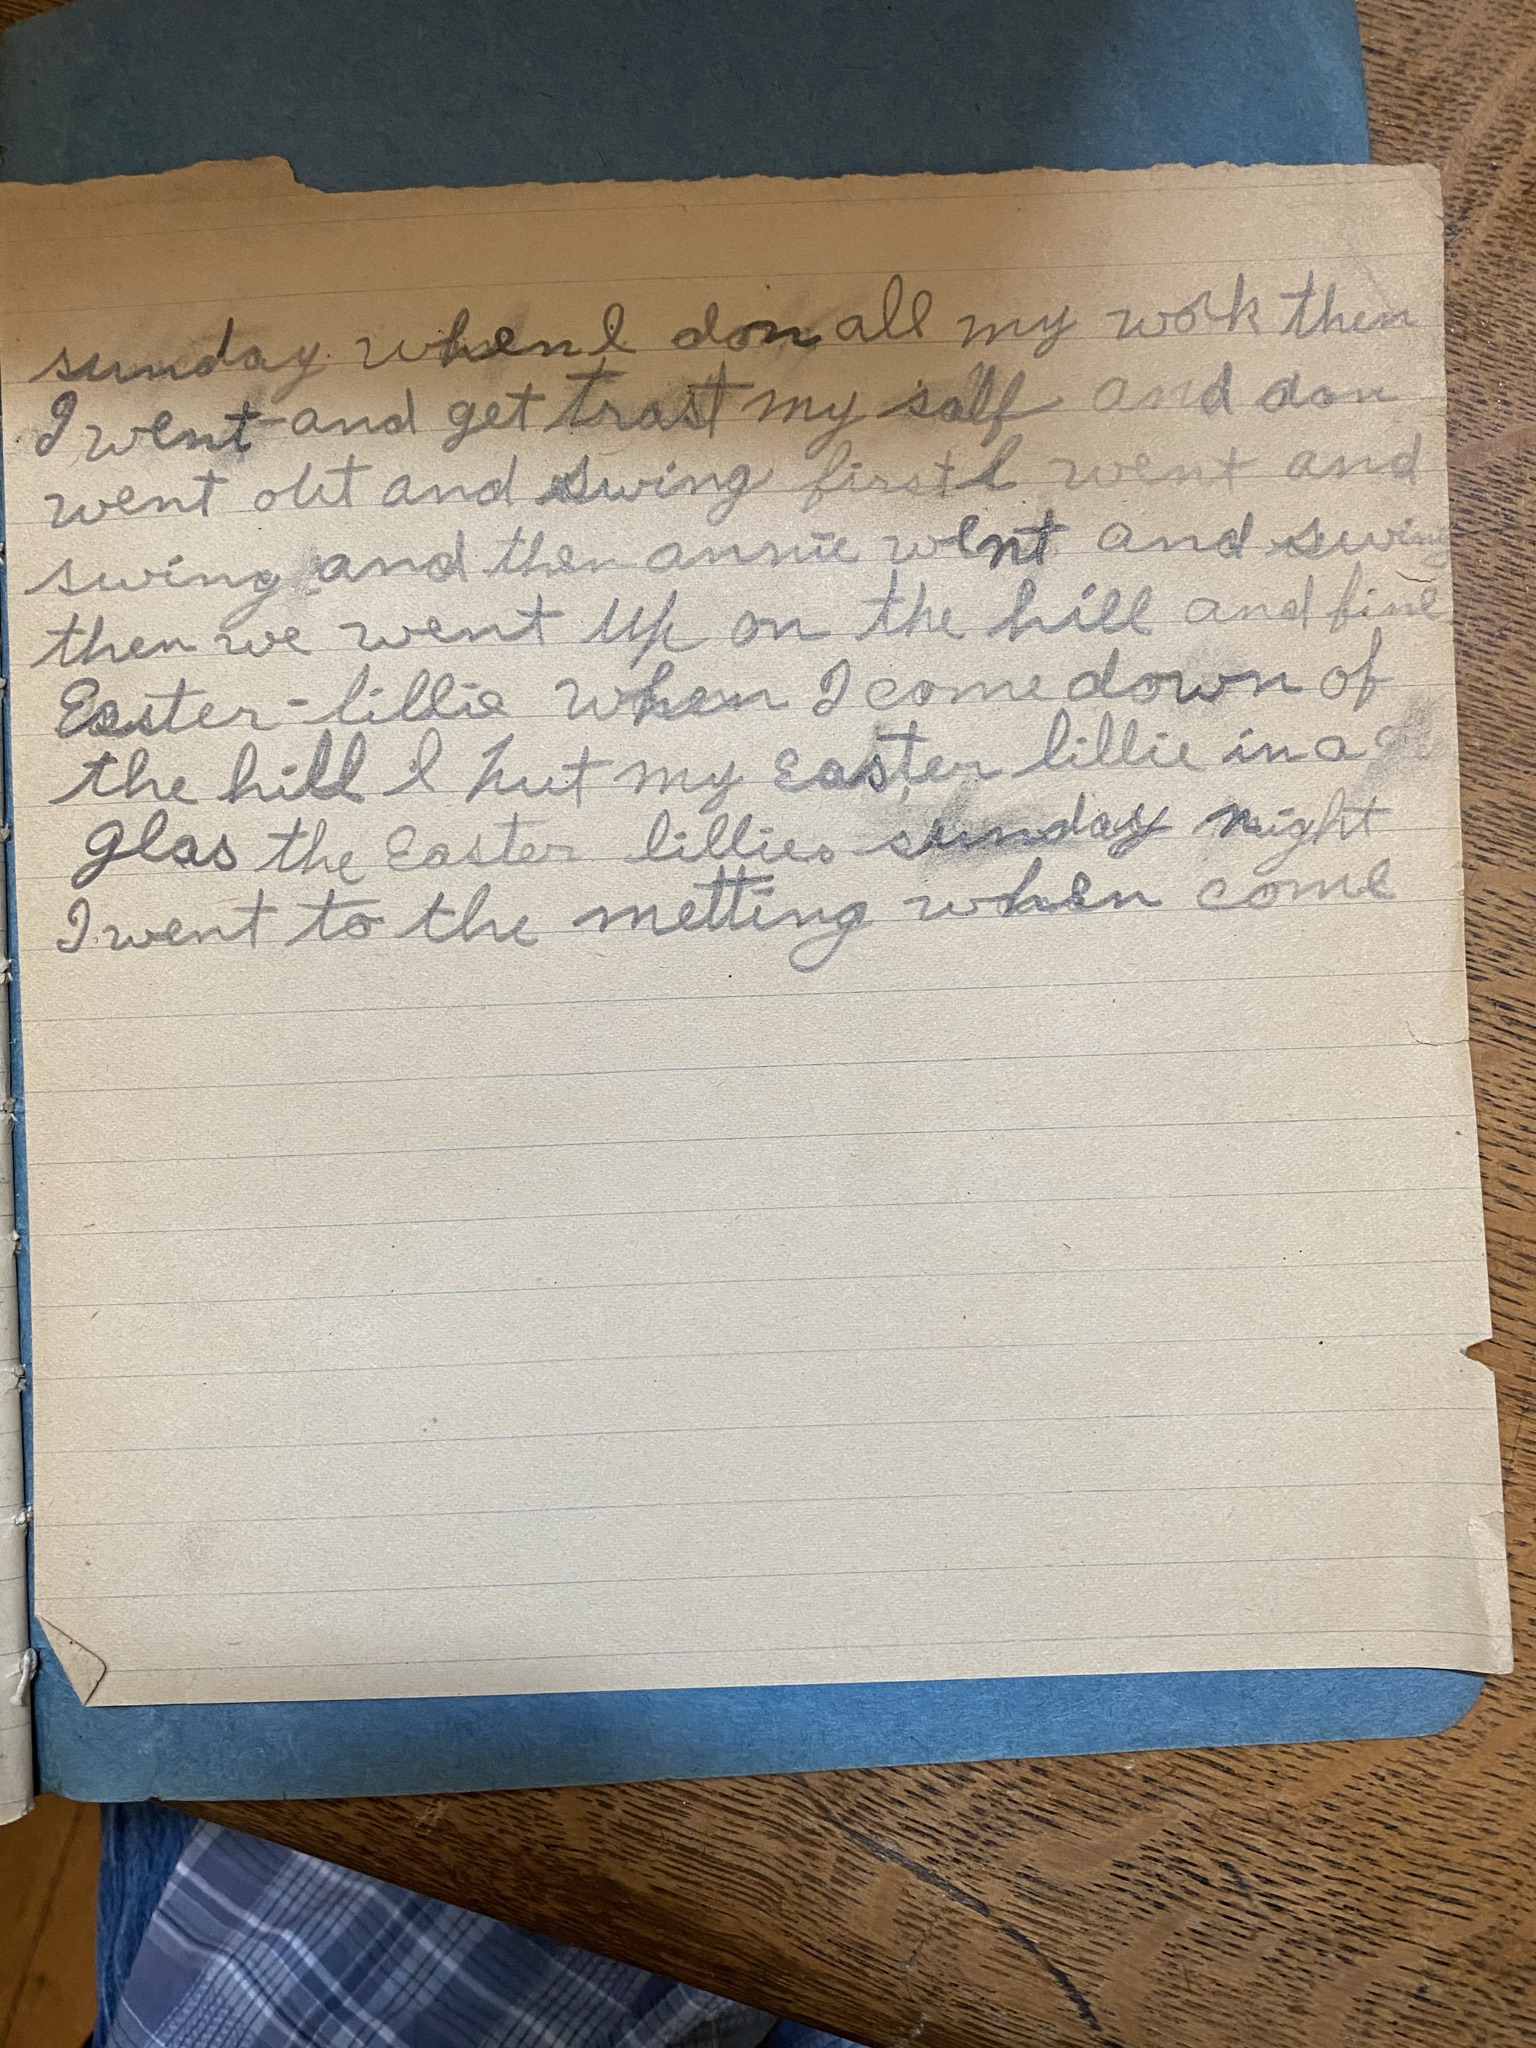 sunday when I don all my work then
I went and get trast my salf and don
went out and swing first I went and
swing and then annie went and swing
then we went up on the hill and fine
Easter-lillie when I come down of
the hill I put my Easter lillie in a
glas the Easter lillie. sunday night
I went to the metting when come